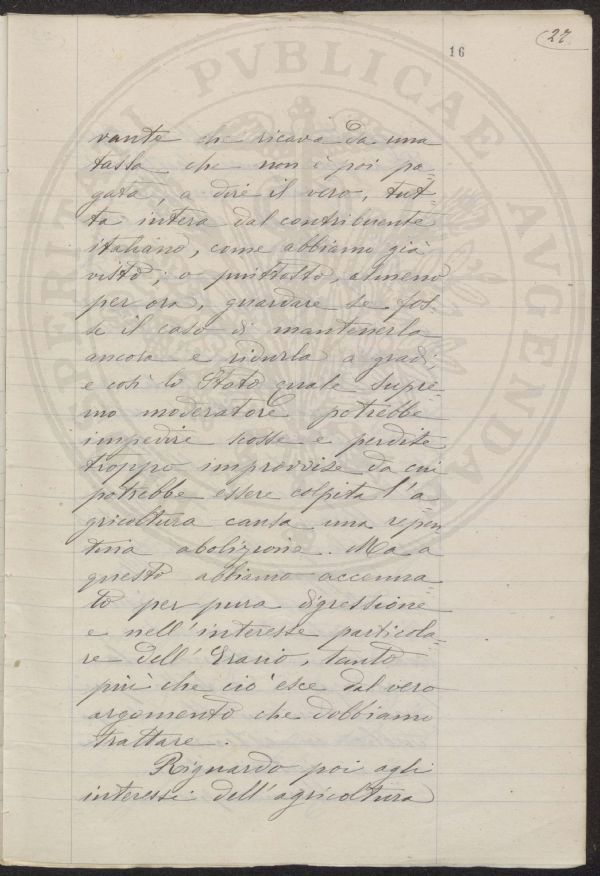 27
16
vante che ricava da una
tassa che non è poi pa=
gata, a dire il vero, tut=
ta intera dal contribuente
italiano, come abbiamo già
visto; o piuttosto, almeno
per ora, guardare se fos=
se il caso di mantenerla
ancora e ridurla a gradi;
e così lo Stato quale supre=
mo moderatore potrebbe
impedire scosse e perdite
troppo improvvise da cui
potrebbe essere colpita l'a=
gricoltura causa una repen=
tina abolizione. Ma a
questo abbiamo accenna=
to per pura digressione
e nell'interesse particola=
re dell'Erario, tanto
più che ciò esce dal vero
argomento che dobbiamo
trattare.
Riguardo poi agli
interessi dell'agricoltura
PERITATI PVBLICAE AVGENDAE